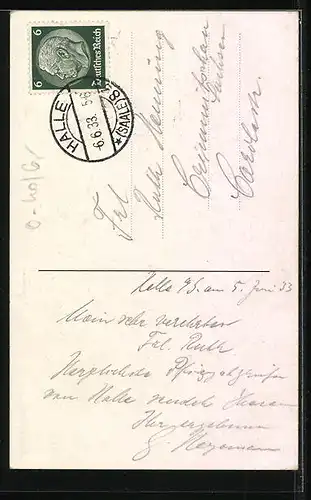 6 6
Deutsches Reich
HALLE
(SAALE) 8
-6.6.33. 5-6
Frl
Ruth Henning
Crimmitschau
Sachsen
Halle a/S. am 5. Juni 33
Mein sehr verehrtes
Frl. Ruth
Herzlichste Pfingstgrüße
von Halle sendet Ihnen
Ihr ergebener